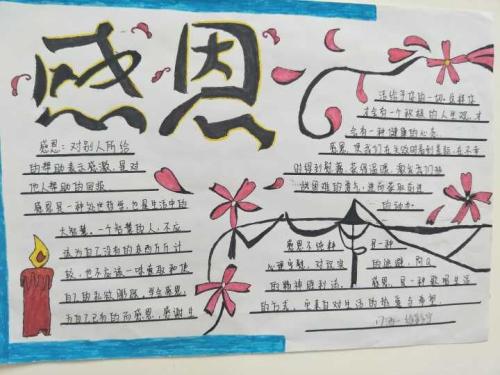 感恩
感恩：对别人所给
的帮助表示感激，是对
他人帮助的回报
感恩是一种处世哲学，也是生活中的
大智慧。一个智慧的人，不应
该为自己没有的东西斤斤计
较，也不应该一味索取和使
自己的私欲膨胀。学会感恩，
为自己已有的而感恩，感谢生
活给予你的一切。这样你
才会有一个积极的人生观，才
会有一种健康的心态。
感恩，使我们在失败时看到差距，在不幸
时得到慰藉，获得温暖，激发我们
挑战困难的勇气，进而获取前进
的动力。
感恩不纯粹是一种
心理安慰，对现实的逃避，阿Q
的精神胜利法。感恩，是一种歌唱生活
的方式，它来自对生活的热爱与希望。